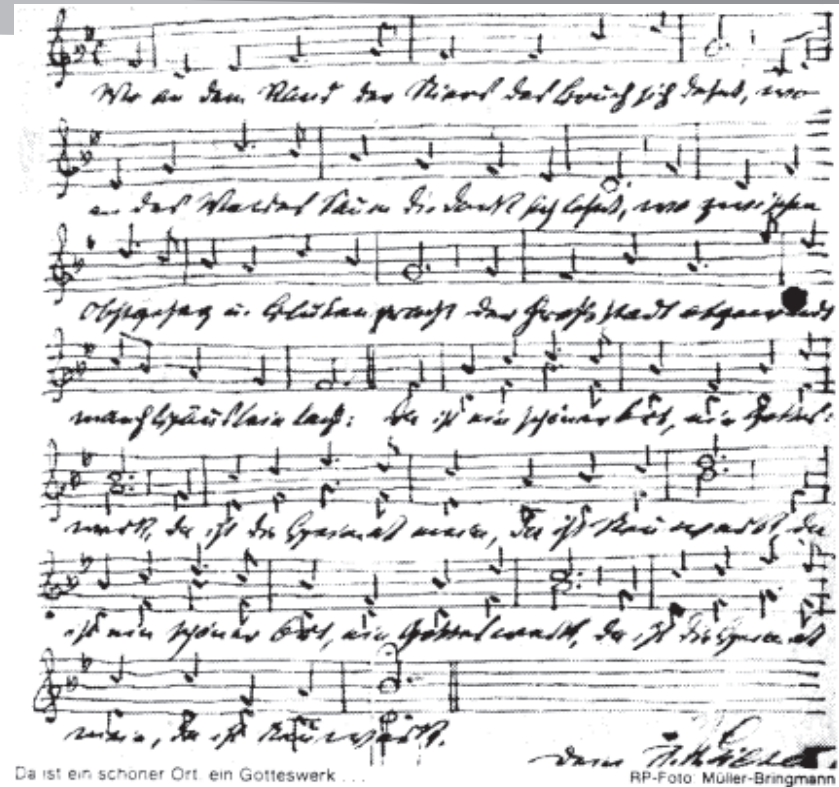 Wo an dem Rand der Niers das Bruch sich dehnt, wo
an des Waldes Saum die sich lehnt, wo zwischen
u. Blütenpracht der Großstadt
manch Häuslein lacht: da ist ein schöner Ort, ein Gottes-
werk, da ist die Heimat mein, da ist Neuwerk, da
ist ein schöner Ort, ein Gotteswerk, da ist die Heimat
mein, da ist Neuwerk.
Da ist ein schöner Ort. ein Gotteswerk ...
RP-Foto: Müller-Bringmann